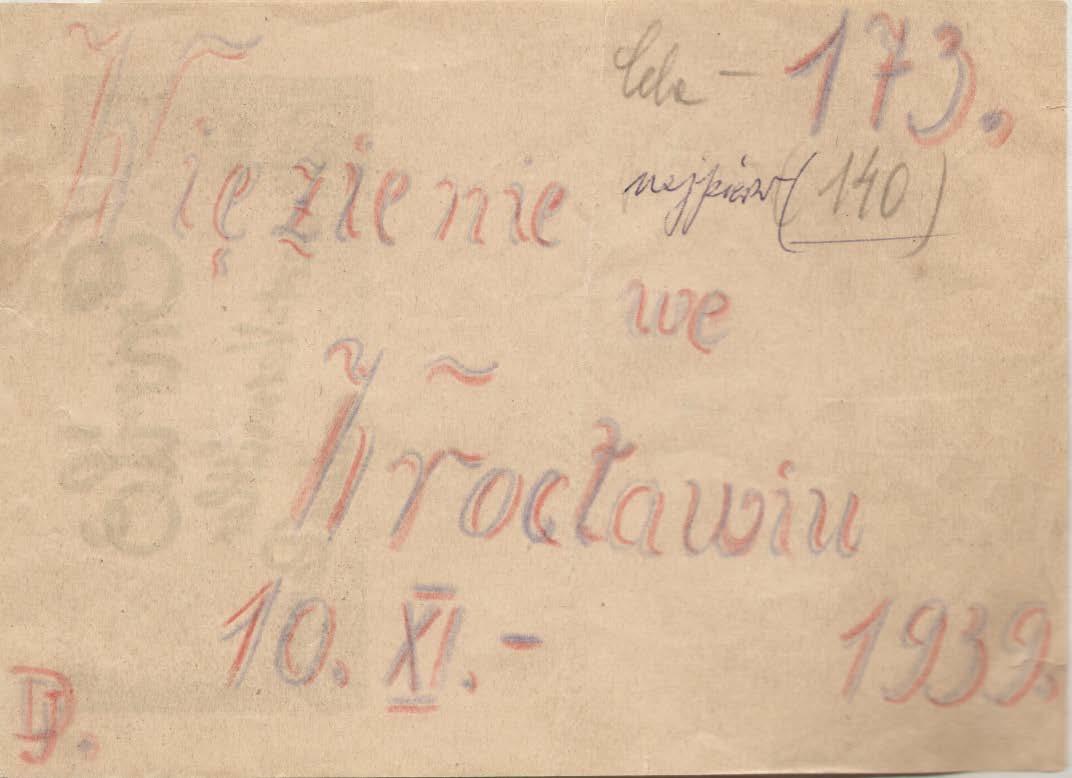 Cela – 173.
Więzienie najpierw (140)
we
Wrocławiu
10. XI. – 1939.
DJ.